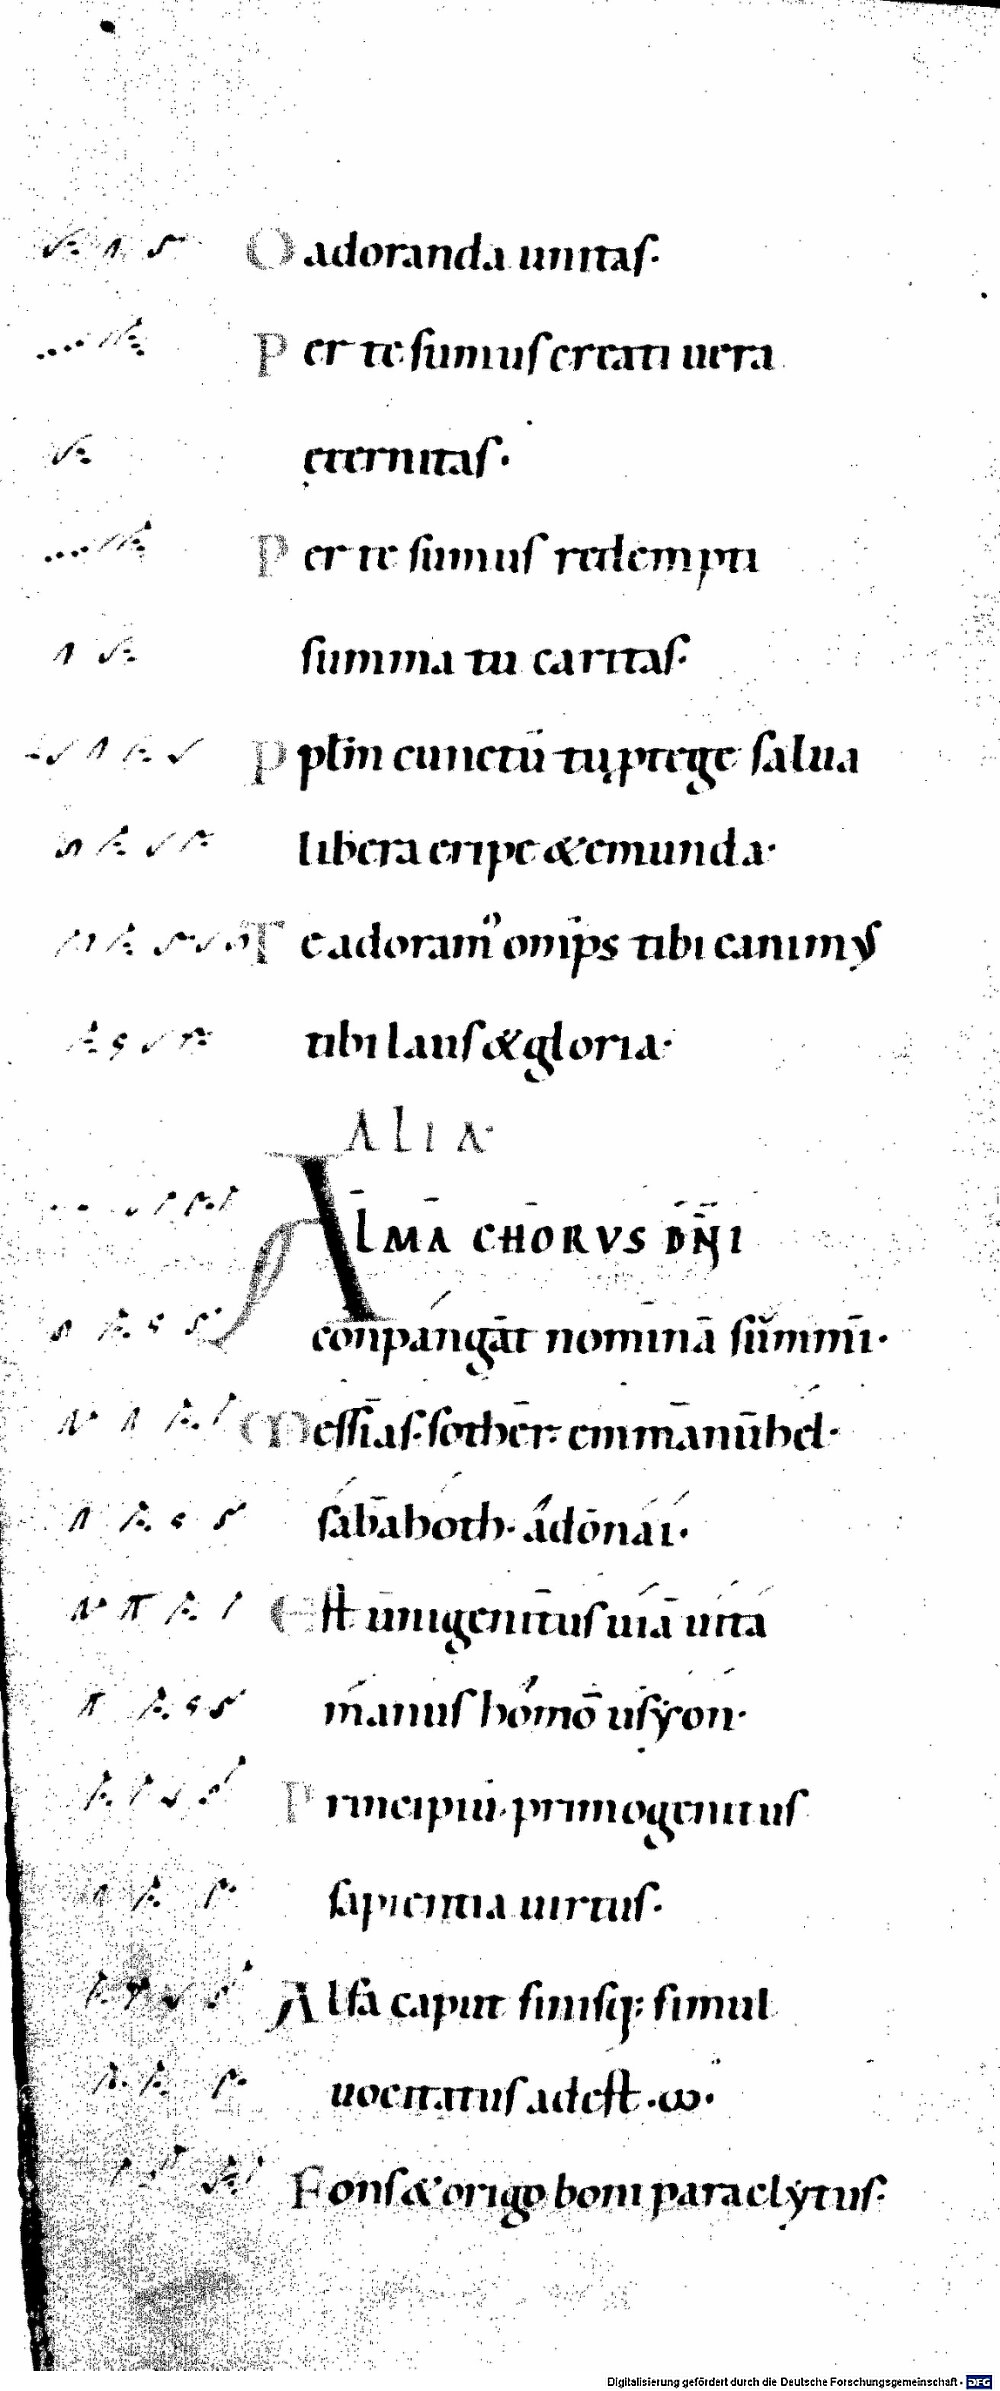 O adoranda unitas.
Per te sumus creati uera
ęternitas.
Per te sumus redempti
summa tu caritas.
Pplm̄ cunctū tu ꝓtege salua
libera eripe & emunda.
Te adoram᾿ omīps tibi canimus
tibi laus & gloria.
ALIA.
ALMA CHORVS DN̄I
conpangat nomina summi.
Messias. sother. emmanuhel.
sababoth. adonai.
Est unigenitus uia uita
manus homo usyon.
Principiū. primogenitus
sapientia uirtus.
Alfa caput finisq; simul
uocitatus adest .ω.
Fons & origo boni paraclytus.
Digitalisierung gefördert durch die Deutsche Forschungsgemeinschaft - DFG